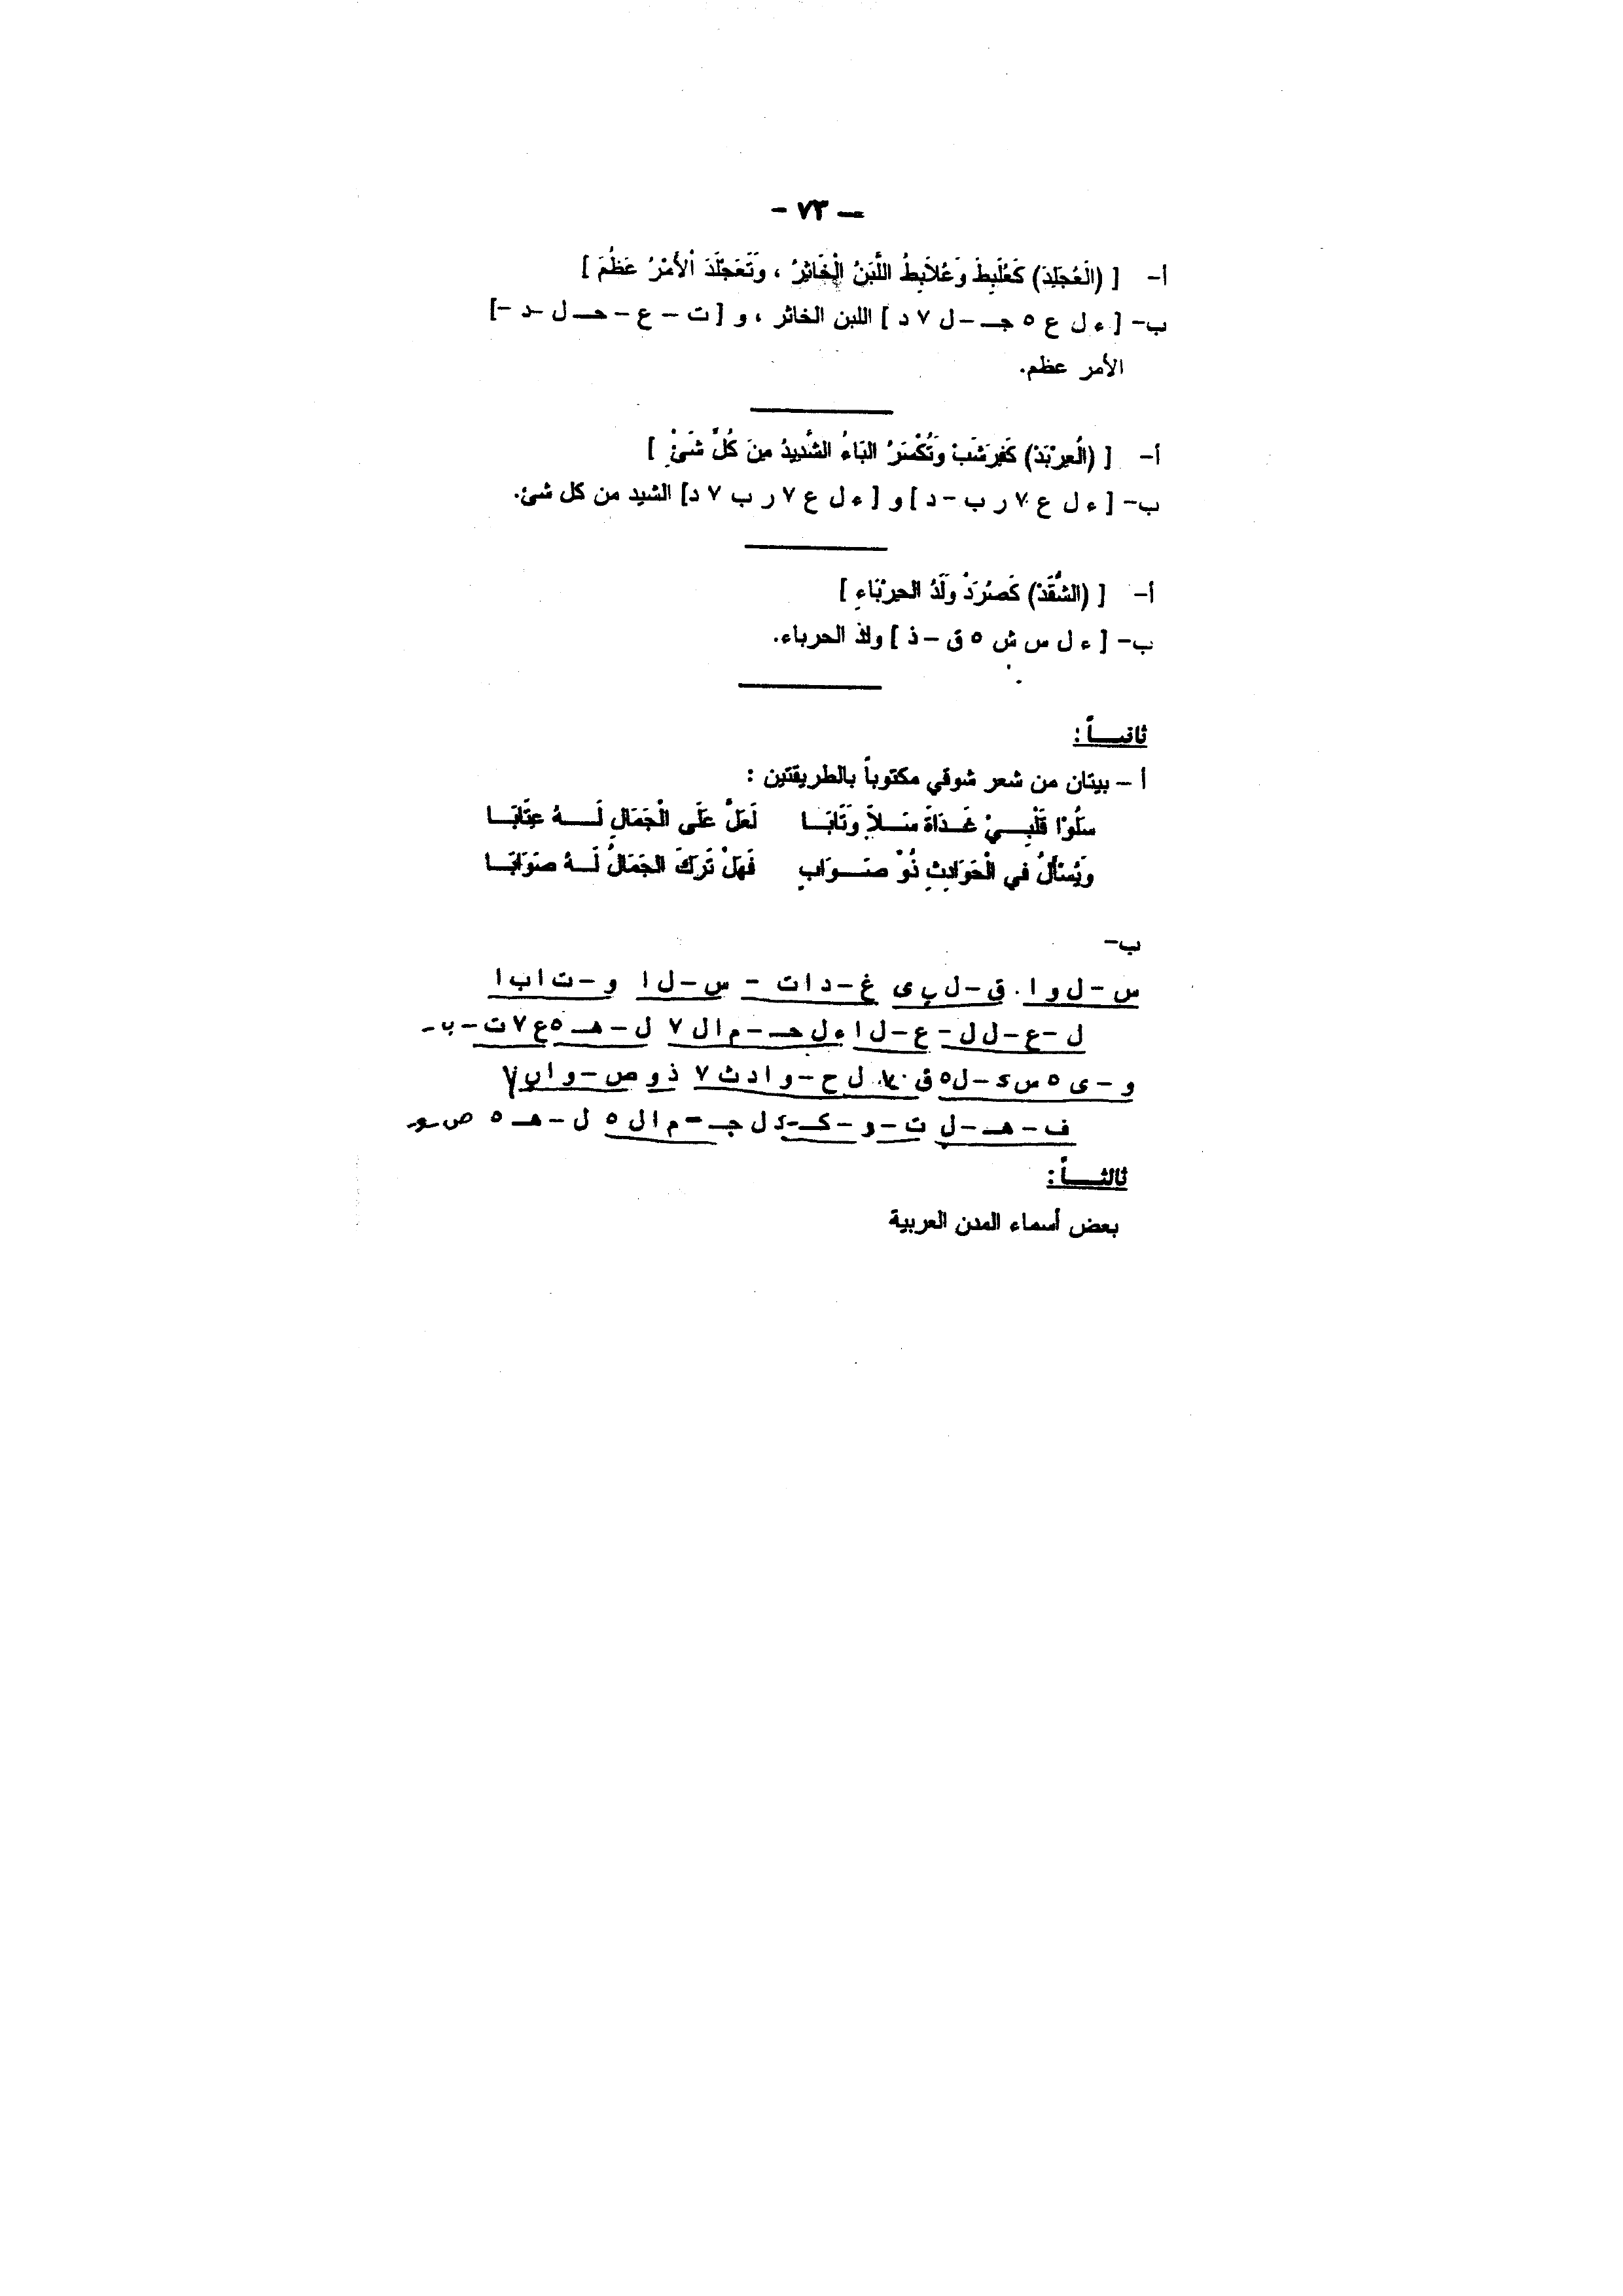 — ٧٣ -
أ- [ (الَعُجَلِدَ) كَعُلَبِطَ وَعُلاَبِطُ اللَّبَنُ الْخَاثِرُ ، وَتَعَجْلَدَ اْلأَمْرُ عَظُمَ ]
ب- [ ء ل ع ٥ جـ – ل ٧ د ] اللبن الخاثر ، و [ ت – ع – حـ ل –د –]
الأمر عظم.
أ- [ (الْعِرْبَدْ) كَفِرَشَبْ وَتُكْسَرُ البَاءُ الشَّدِيدُ مِنَ كُلَّ شَئْ ]
ب- [ ء ل ع ٧ ر ب – د ] و [ ء ل ع ٧ ر ب ٧ د] الشيد من كل شئ.
أ- [ (الشُّقَذْ) كَصُرَدْ وَلَدُ الحِرْبَاءِ ]
ب- [ ء ل س ش ٥ ق – ذ ] ولد الحرباء.
ثانيــاً :
أ – بيتان من شعر شوقي مكتوباً بالطريقتين :
سَلُوْا قَلْبِــيْ غَــدَاةَ سَــلاَ وَتَابَــا لَعَلَّ عَلَى الْجَمَالِ لَــهُ عِتَابَــا
وَيُسْأَلُ في الْحَوَادِثِ ذُوْ صَــوَابِ فَهَلْ تَرَكَ الجَمَالُ لَــهُ صَوَابَــا
ب-
س – ل و ا . ق – ل ب ى غ – د ا ت – س – ل ا و – ت ا ب ا
ل – ع – ل ل – ع – ل ا ء ل حـ – م ا ل ٧ ل – هـ ٥ ع ٧ ت – ب –
و – ى ٥ س ء – ل ٥ ق ل ح – و ا د ث ٧ ذ و ص – و ا ب ٧
ف – هـ – ل ت – و – كـ – ء ل جـ – م ا ل ٥ ل – هـ ٥ ص – و –
ثالثــاً :
بعض أسماء المدن العربية